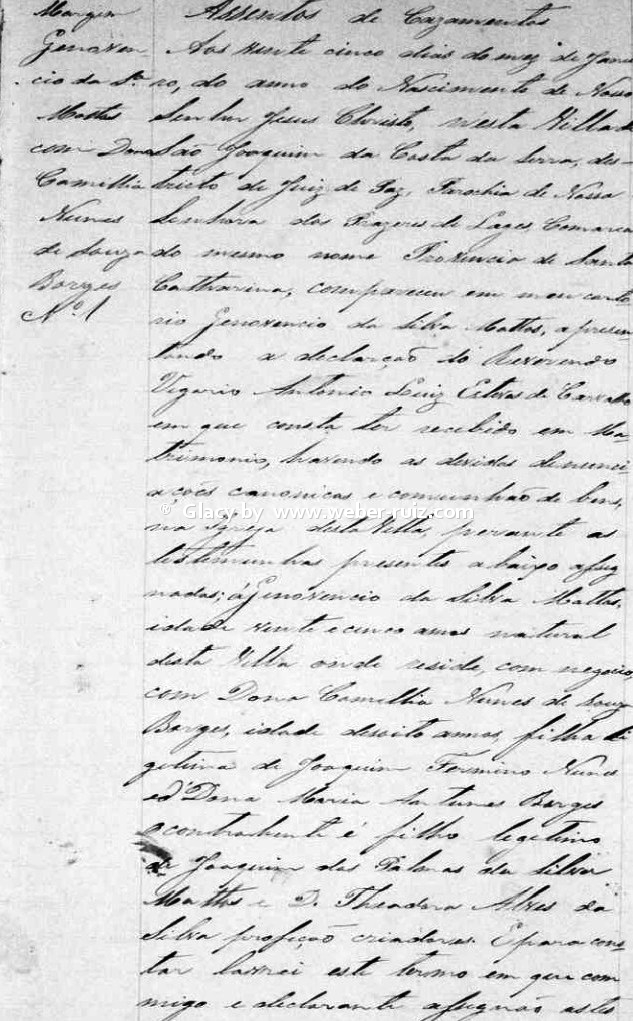 Margem
Genoven
cio da S.ª
Mattos
com Dona
Camillia
Nunes
de Souza
Borges
N.º 1
Assentos de Cazamentos
Aos vinte cinco dias do mez de Janei
ro, do anno do Nascimento de Nosso
Senhor Jesus Christo, nesta Villa de
São Joaquim da Costa da Serra, des-
tricto de Juiz de Paz, Parochia de Nossa
Senhora dos Prazeres de Lages, Comarca
do mesmo nome Provincia de Santa
Catharina, compareceu em meu carto
rio Genovencio da Silva Mattos, apresen
tando a declarção do Reverendo
Vigario Antonio Luiz Esteves de Carvalho
em que consta ter recebido em Ma
trimonio, havendo as devidas denunci
ações canonicas e comunhão de bens,
na Igreja desta Villa, perante as
testemunhas presentes abaixo assig
nadas; á Genovencio da Silva Mattos,
idade vinte e cinco annos natural
desta Villa onde reside, com negocio,
com Dona Camillia Nunes de Souza
Borges, idade desoito annos, filha li
getima de Joaquim Fermino Nunes
e d'Dona Maria Antunes Borges
o contrahente é filho legetimo
de Joaquim das Palmas da Silva
Mattos e D. Theadora Alves da
Silva profeção criadores. E para cons
tar lavrei este termo em que com
migo e declarante assignão as tes
© Glacy by www.weber-ruiz.com